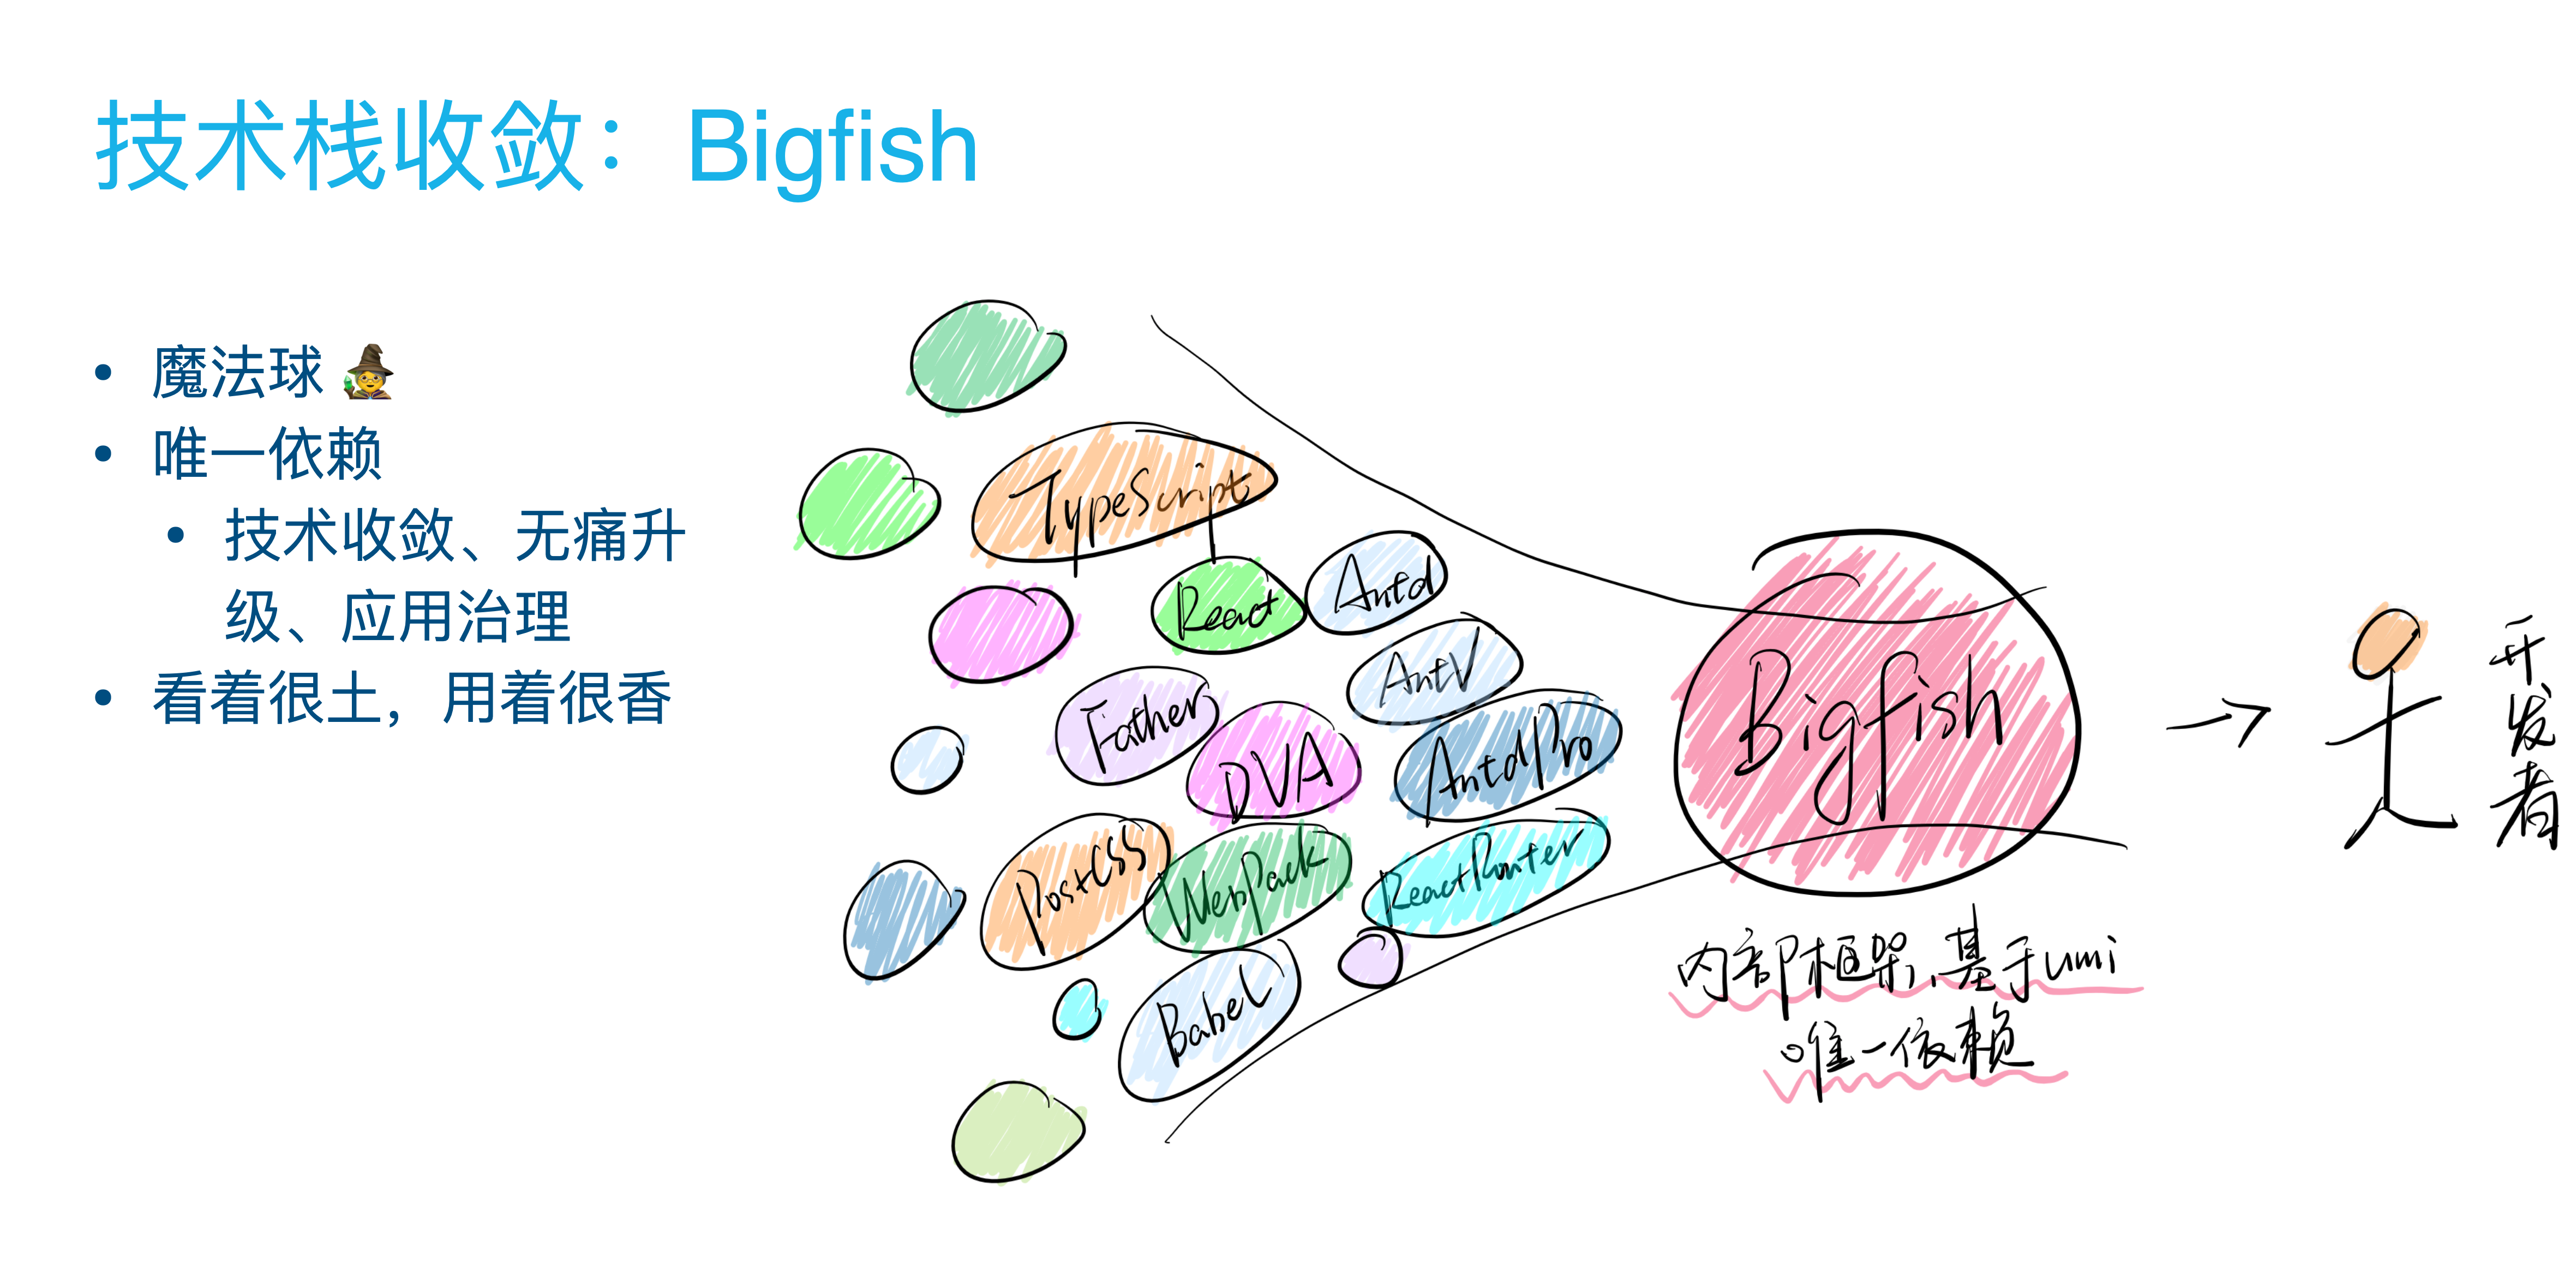 技术栈收敛：Bigfish
• 魔法球
• 唯一依赖
• 技术收敛、无痛升
级、应用治理
• 看着很土，用着很香
TypeScript
React
Antd
AntV
Father
DVA
AntdPro
PostCSS
WebPack
ReactRouter
Babel
Bigfish
开发者
内部框架，基于umi
唯一依赖